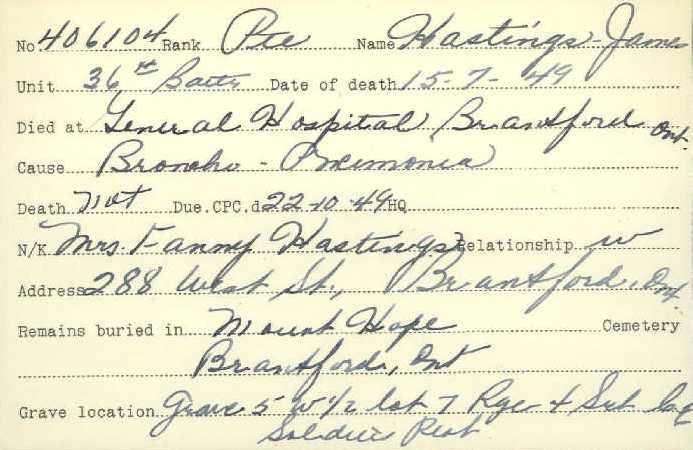 No 406104 Rank Pte Name Hastings James
Unit 36th Battn Date of death 15-7-49
Died at General Hospital Brantford Ont
Cause Broncho-Pneimonia
Death not Due.CPC.d 22-10-49 HQ
N/K Mrs. Fanny Hastings Relationship w
Address 288 West St., Brantford, Ont
Remains buried in Mount Hope Cemetery
Brantford, Ont
Grave location Grave 5 W 1/2 lot 7 Rge 4
Soldiers Plot